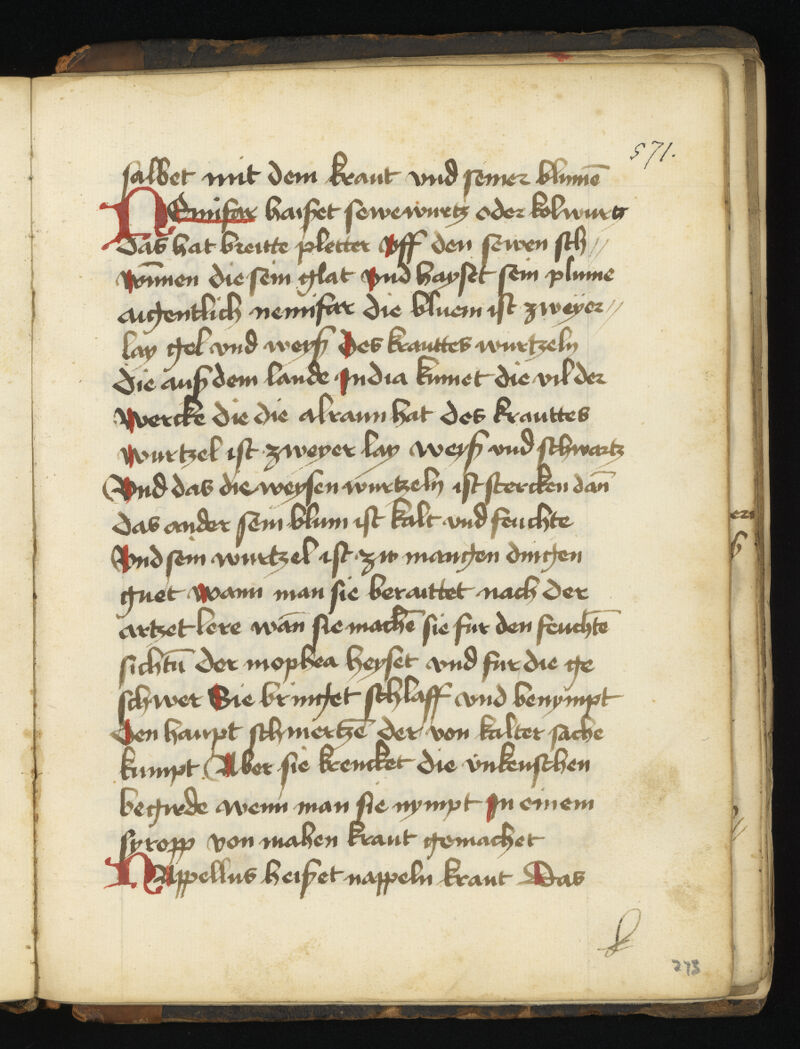 571.
salbet mit dem kraut vnd seiner blumē
NEmifar haisset sewewurtz oder kolwurtz
das hat breitte pletter Vff den sewen sch//
wīnnen die sein glat vnd hayset sein plume
aigentlich nemifar die bluem ist zweyer//
lay gel vnd weyß Des krauttes wurtzeln
die auß dem lande India kumet die vil der
wercke die die alraun hat des krauttes
wurtzel ist zweyer lay weyß vnd schwartz
Vnd das die weysen wurtzeln ist stercken dañ
das ander sein blum ist kalt vnd feuchte
Vnd sein wurtzel ist zw mangen dingen
guet wann man sie beraittet nach der
artzet lere wañ sie machē sie fur den feuchtē
sichtū der mophea heyset vnd fur die ge
schwer Sie bringet schlaff vnd benympt
Den haupt schmertzē der von kalter sache
kumpt Aber sie krencket die vnkeuschen
begirde wenn man sie nympt In einem
syropp von mahen kraut gemachet
NAppellus heisset nappeln kraut Das
273